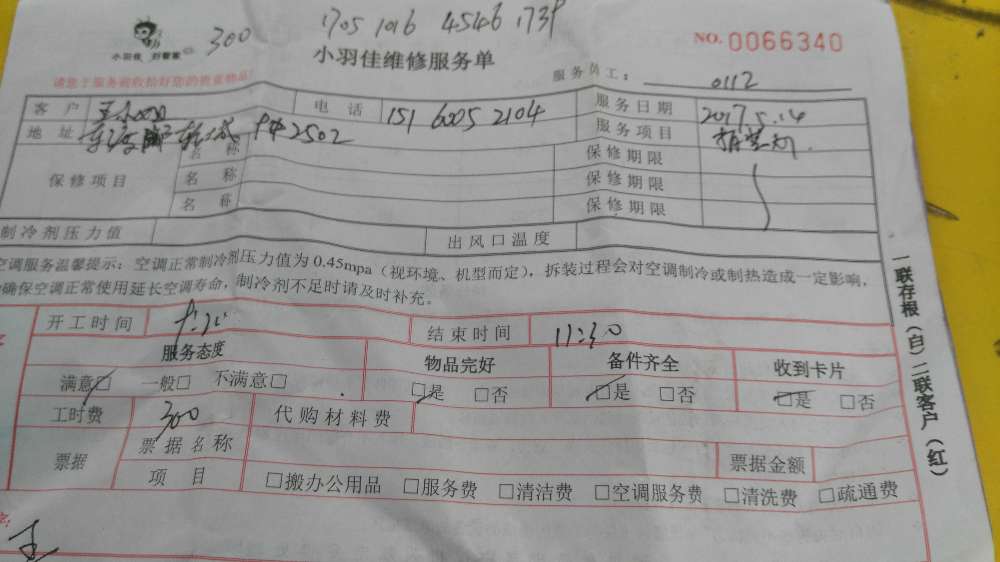 1705 1016 4546 1739
300
小羽佳 好管家
小羽佳维修服务单
NO. 0066340
请您于服务前收拾好您的贵重物品!
服务员工: 0112
客户 电话 151 6005 2104 服务日期 2017.5.14
地址 2502 服务项目
保修项目 名称 保修期限
名称 保修期限
名称 保修期限
制冷剂压力值 出风口温度
空调服务温馨提示:空调正常制冷剂压力值为0.45mpa(视环境、机型而定),拆装过程会对空调制冷或制热造成一定影响,
确保空调正常使用延长空调寿命,制冷剂不足时请及时补充。
开工时间 结束时间 11:30
服务态度 物品完好 备件齐全 收到卡片
满意□ 一般□ 不满意□ □是 □否 □是 □否 □是 □否
工时费 300 代购材料费
票据 票据名称 票据金额
项目 □搬办公用品 □服务费 □清洁费 □空调服务费 □清洗费 □疏通费
字:
王
一联存根(白)二联客户(红)